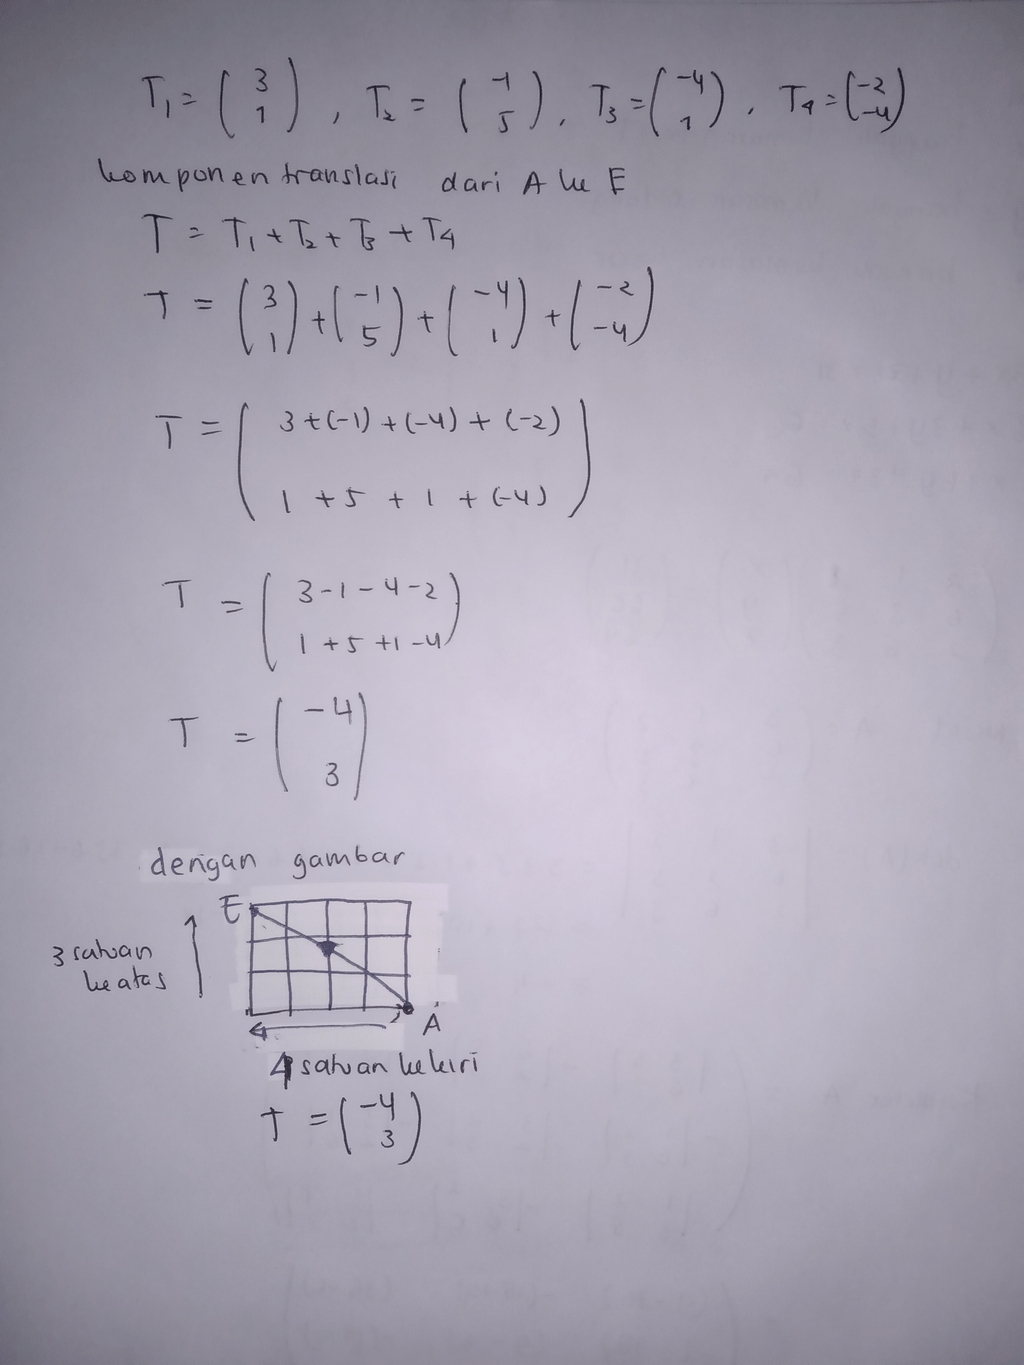 T₁ = (3 1), T₂ = (-1 5), T₃ = (-4 1), T₄ = (-2 -4)
komponen translasi dari A ke E
T = T₁ + T₂ + T₃ + T₄
T = (3 1) + (-1 5) + (-4 1) + (-2 -4)
T = (3+(-1)+(-4)+(-2)
1+5+1+(-4))
T = (3-1-4-2
1+5+1-4)
T = (-4
3)
dengan gambar
E
3 satuan
keatas
A
4 satuan kekiri
T = (-4 3)